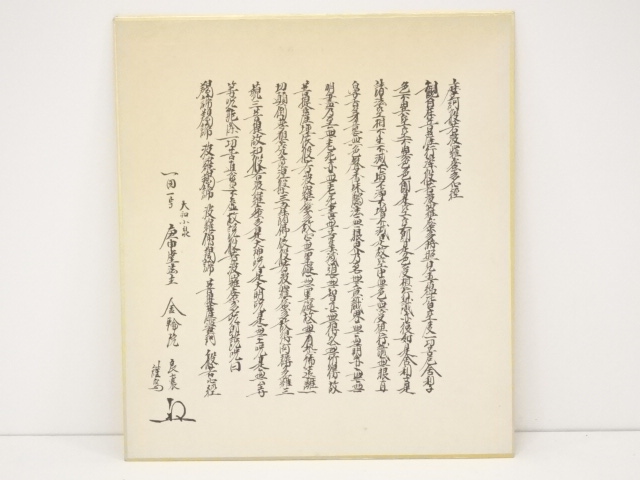 摩訶般若波羅蜜多心経
観自在菩薩行深般若波羅蜜多時照見五蘊皆空度一切苦厄舎利子
色不異空空不異色色即是空空即是色受想行識亦復如是舎利子是
諸法空相不生不滅不垢不浄不増不減是故空中無色無受想行識無眼耳
鼻舌身意無色声香味触法無眼界乃至無意識界無無明亦無無
明尽乃至無老死亦無老死尽無苦集滅道無智亦無得以無所得故
菩提薩埵依般若波羅蜜多故心無罣礙無罣礙故無有恐怖遠離一
切顛倒夢想究竟涅槃三世諸仏依般若波羅蜜多故得阿耨多羅三
藐三菩提故知般若波羅蜜多是大神呪是大明呪是無上呪是無等
等呪能除一切苦真実不虚故説般若波羅蜜多呪即説呪曰
羯諦羯諦 波羅羯諦 波羅僧羯諦 菩提薩婆訶 般若心経
大和小泉
庚申堂主 金輪院